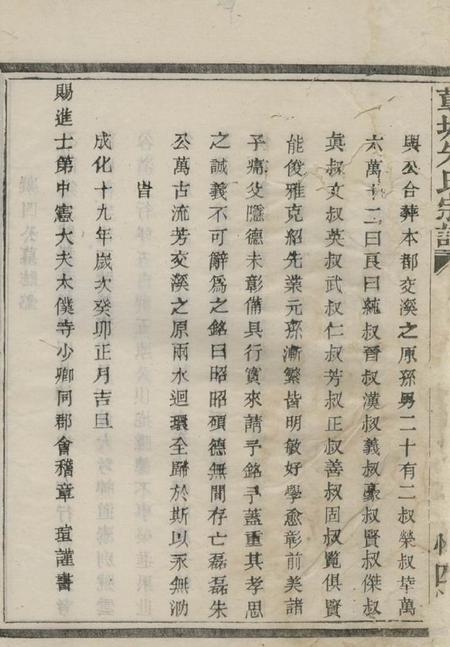 與公合葬本都交溪之原孫男二十有二叔榮叔華萬
六萬十二曰良曰純叔晉叔漢叔義叔豪叔賢叔傑叔
真叔文叔英叔武叔仁叔芳叔正叔善叔固叔覧俱賢
能俊雅克紹先業元孫漸繁皆明敏好學愈彰前美諸
子痛父隱德未彰備具行實來請予銘予蓋重其孝思
之誠義不可辭爲之銘曰昭昭碩德無間存亡磊磊朱
公萬古流芳交溪之原兩水迴環全歸於斯以永無泐
旹
成化十九年歲次癸卯正月吉旦
賜進士第中憲大夫太僕寺少卿同郡會稽章瑄謹書